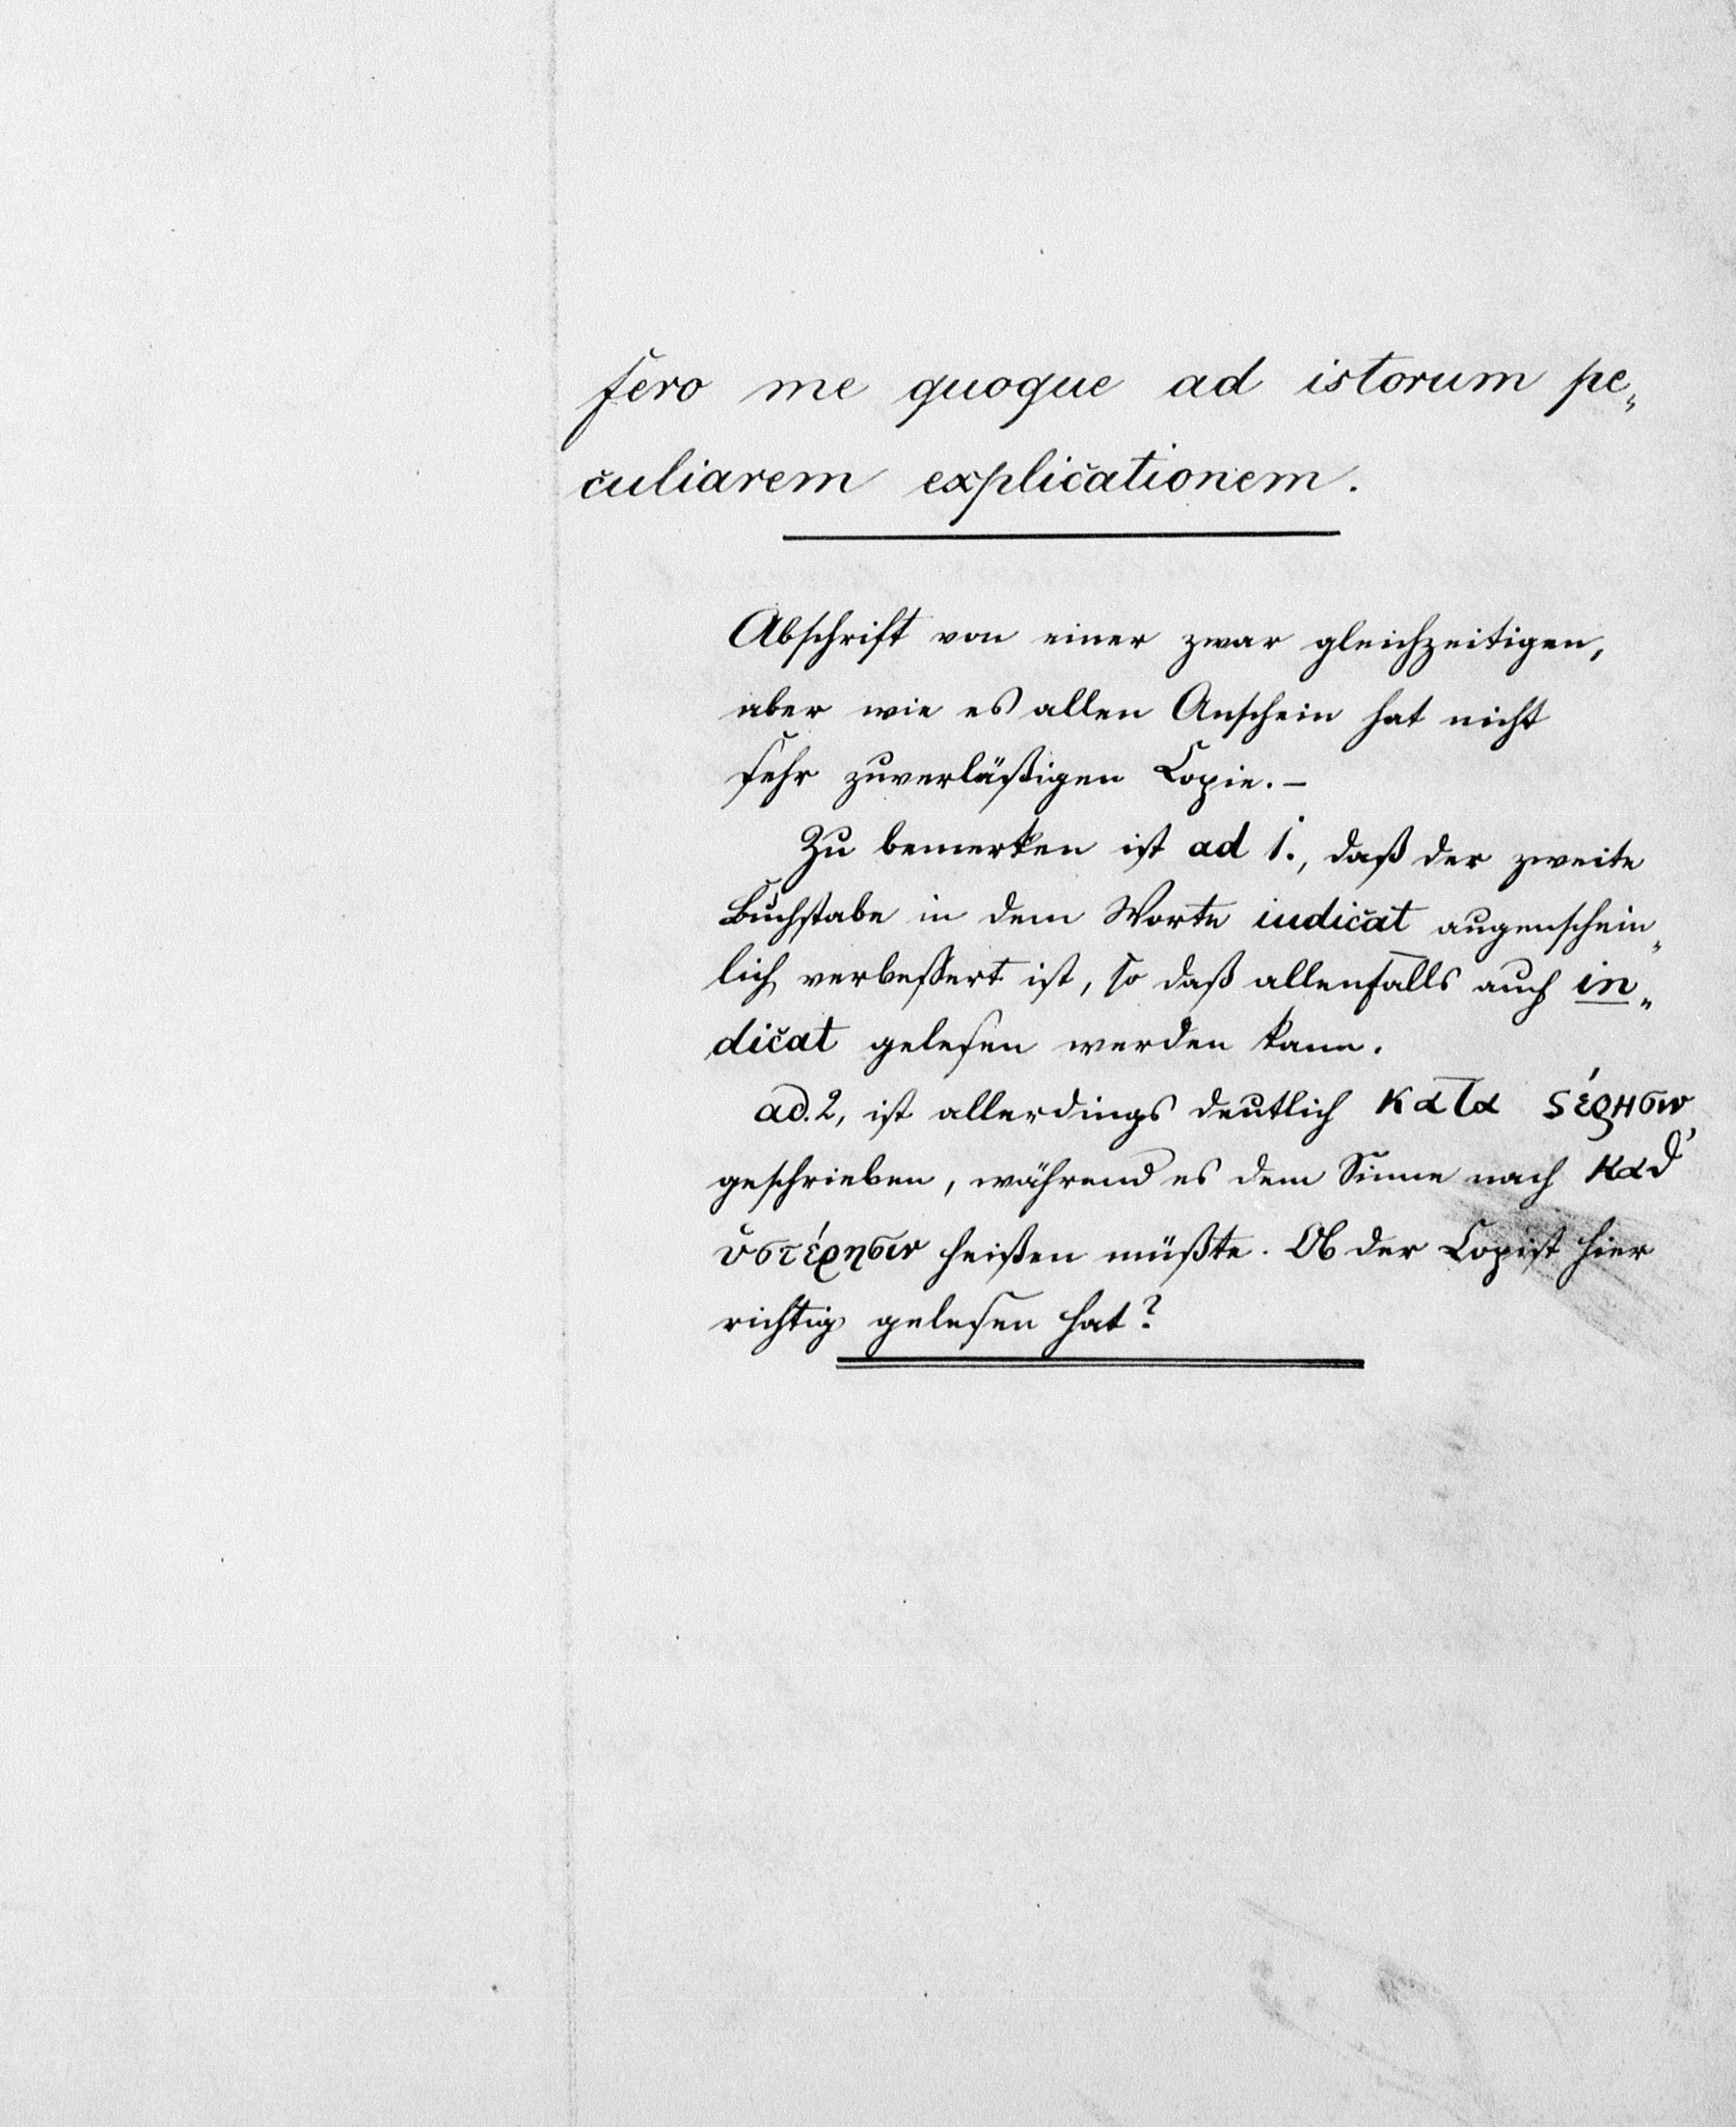 fero me quoque ad istorum pe„
culiarem explicationem.
Abschrift von einer zwar gleichzeitigen,
aber wie es allen Anschein hat nicht
sehr zuverläßigen Copie. –
Zu bemerken ist ad 1., daß der zweite
Buchstabe in dem Worte iudicat augenschein„
lich verbessert ist, so daß allenfalls auch in„
dicat gelesen werden kann.
ad. 2, ist allerdings deutlich κατα ϛέρησιν
geschrieben, während es dem Sinne nach καθ'
ὑστέρησιν heißen müßte. Ob der Copist hier
richtig gelesen hat?